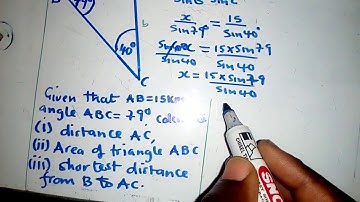 sin B sin C
B
79°
b
40°
C
x/sin79° = 15/sin40°
sin40x/sin40 = 15×sin79/sin40
x = 15×sin79/sin40
Given that AB=15km
angle ABC=79°
(i) distance AC,
(ii) Area of triangle ABC
(iii) shortest distance
from B to AC.
SNO